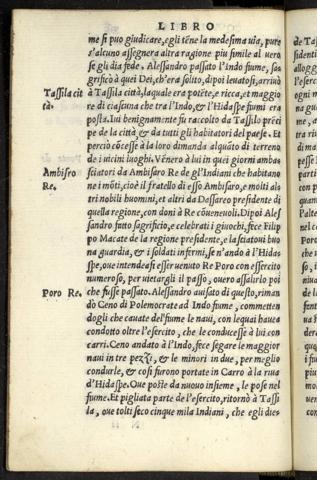 LIBRO
me si puo giudicare, egli tēne la medesima uia, pure
s'alcuno assegnera altra ragione piu simile al uero
se gli dia fede. Alessandro passato l'Indo fiume, sa-
grificò a quei Dei, ch'era solito, dipoi leuatosi, arriuò
Tassila cit
tà.
à Tassila città, laquale era potēte, e ricca, et maggio
re di ciascuna che tra l'Indo, & l'Hidaspe fiumi era
posta. Iui benignamente fu raccolto da Tassilo prēci
pe de la città, & da tutti gli habitatori del paese. Et
perciò cōcesse à la loro dimanda alquāto di terreno
de i uicini luoghi. Vēnero à lui in quei giorni ambas
Ambisro
Re.
sciatori da Ambisaro Re de gl'Indiani che habitano
ne i mōti, cioè il fratello di esso Ambisaro, e molti al
tri nobili huomini, et altri da Dassareo presidente di
quella regione, con doni à Re cōueneuoli. Dipoi Ales
sandro fatto sagrificio, e celebrati i giuochi, fece Filip
po Macate de la regione presidente, e lasciatoui buo
na guardia, & i soldati infermi, se n'andò à l'Hidas
spe, oue intendea esser uenuto Re Poro con essercito
numeroso, per uietargli il passo, ouero assalirlo poi
Poro Re.
che fusse passato. Alessandro auisato di questo, riman
dò Ceno di Polemocrate ad Indo fiume, commetten
dogli che cauate del fiume le naui, con lequai hauea
condotto oltre l'esercito, che le conducesse à lui con
carri. Ceno andato à l'Indo, fece segare le maggior
naui in tre pezzi, & le minori in due, per meglio
condurle, & cosi furono portate in Carro à la riua
d'Hidaspe. Oue poste da nuouo insieme, le pose nel
fiume. Et pigliata parte de l'esercito, ritornò à Tassi
la, oue tolti seco cinque mila Indiani, che egli dies-